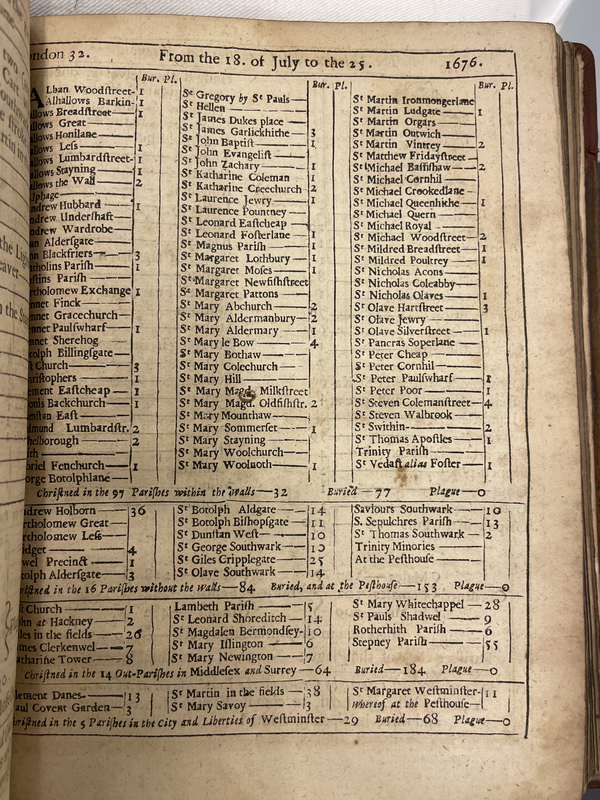 ondon 32. From the 18. of July to the 25. 1676.
Bur. Pl.
Alban Woodſtreet- 1
Alhallows Barkin- 1
llows Breadſtreet— 1
llows Great—
llows Honilane—
llows Leſs— 1
llows Lumbardſtreet- 1
llows Stayning— 1
llows the Wall— 2
lphage—
ndrew Hubbard— 1
ndrew Underſhaft—
ndrew Wardrobe—
nn Alderſgate—
nn Blackfriers— 3
tholins Pariſh— 1
ſtins Pariſh—
tholomew Exchange 1
nnet Finck—
nnet Gracechurch—
nnet Paulſwharf— 1
nnet Sherehog
otolph Billingſgate—
t Church— 3
riſtophers— 1
ement Eaſtcheap— 1
onis Backchurch— 1
nſtan Eaſt—
dmund Lumbardſtr. 2
helborough— 2
ith—
briel Fenchurch— 1
orge Botolphlane—
Bur. Pl.
St Gregory by St Pauls—
St Hellen—
St James Dukes place—
St James Garlickhithe— 3
St John Baptiſt— 1
St John Evangeliſt—
St John Zachary— 1
St Katharine Coleman 1
St Katharine Creechurch 2
St Laurence Jewry— 1
St Laurence Pountney—
St Leonard Eaſtcheap—
St Leonard Foſterlane— 1
St Magnus Pariſh— 1
St Margaret Lothbury— 1
St Margaret Moſes— 1
St Margaret Newfiſhſtreet
St Margaret Pattons—
St Mary Abchurch— 2
St Mary Aldermanbury— 2
St Mary Aldermary— 1
St Mary le Bow— 4
St Mary Bothaw—
St Mary Colechurch—
St Mary Hill—
St Mary Magd. Milkſtreet
St Mary Magd. Oldfiſhſtr. 2
St Mary Mounthaw—
St Mary Somerſet— 1
St Mary Stayning—
St Mary Woolchurch—
St Mary Woolnoth— 1
Bur. Pl.
St Martin Ironmongerlane
St Martin Ludgate— 1
St Martin Orgars—
St Martin Outwich—
St Martin Vintrey— 2
St Matthew Fridayſtreet—
St Michael Baſſiſhaw— 2
St Michael Cornhil—
St Michael Crookedlane—
St Michael Queenhithe— 1
St Michael Quern—
St Michael Royal—
St Michael Woodſtreet— 2
St Mildred Breadſtreet— 1
St Mildred Poultrey— 1
St Nicholas Acons—
St Nicholas Coleabby—
St Nicholas Olaves— 1
St Olave Hartſtreet— 3
St Olave Jewry—
St Olave Silverſtreet— 1
St Pancras Soperlane—
St Peter Cheap—
St Peter Cornhil—
St Peter Paulſwharf— 1
St Peter Poor— 1
St Steven Colemanſtreet— 4
St Steven Walbrook—
St Swithin— 2
St Thomas Apoſtles— 1
Trinity Pariſh—
St Vedaſt alias Foſter— 1
Chriſtned in the 97 Pariſhes within the Walls—32 Buried—77 Plague—0
ndrew Holborn— 36
rtholomew Great—
rtholomew Leſs—
idget— 4
wel Precinct— 1
olph Alderſgate— 3
St Botolph Aldgate— 14
St Botolph Biſhopſgate— 11
St Dunſtan Weſt— 10
St George Southwark— 10
St Giles Cripplegate— 25
St Olave Southwark— 14
Saviours Southwark— 10
S. Sepulchres Pariſh— 13
St Thomas Southwark— 2
Trinity Minories
At the Peſthouſe—
riſtned in the 16 Pariſhes without the Walls—84 Buried, and at the Peſthouſe—153 Plague—0
t Church— 1
ohn at Hackney— 2
iles in the fields— 26
mes Clerkenwel— 7
atharine Tower— 8
Lambeth Pariſh— 5
St Leonard Shoreditch— 14
St Magdalen Bermondſey- 10
St Mary Iſlington— 6
St Mary Newington— 7
St Mary Whitechappel— 28
St Pauls Shadwel— 9
Rotherhith Pariſh— 6
Stepney Pariſh— 55
Chriſtned in the 14 Out-Pariſhes in Middleſex and Surrey—64 Buried—184 Plague—0
lement Danes— 13
aul Covent Garden— 3
St Martin in the fields— 38
St Mary Savoy— 3
St Margaret Weſtminſter- 11
Whereof at the Peſthouſe—
hriſtned in the 5 Pariſhes in the City and Liberties of Weſtminſter—29 Buried—68 Plague—0